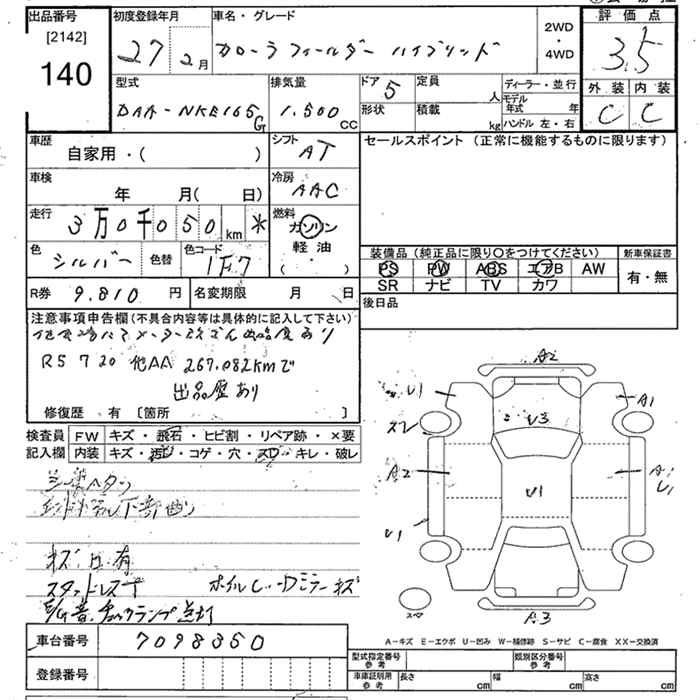 出品番号
[2142]
140
初度登録年月
27 2月
車名・グレード
カローラ フィールダー ハイブリッド
2WD
・
4WD
評価点
3.5
外装 内装
C C
型式
DAA-NKE165G
排気量
1,500 CC
ドア 5
形状
定員 人
積載 kg
ディーラー・並行
モデル年式 年
ハンドル 左・右
車歴
自家用・( )
シフト
AT
セールスポイント (正常に機能するものに限ります)
車検
年 月( 日)
冷房
AAC
走行
3万0千050km *
燃料
ガソリン
軽油
( ・ )
色
シルバー
色替
色コード
1F7
装備品 (純正品に限り○をつけてください)
PS PW ABS エアB AW
SR ナビ TV カワ
新車保証書
有・無
R券 9.810 円
名変期限 月 日
後日品
注意事項申告欄(不具合内容等は具体的に記入して下さい)
他会場にてメーター改ざん出品歴あり
R5 7 20 他AA 267.082kmで
出品歴あり
修復歴 有 [箇所 ]
検査員記入欄
FW キズ・飛石・ヒビ割・リペア跡・×要
内装 キズ・汚レ・コゲ・穴・スレ・キレ・破レ
下部曲り
キズ凹有
スタッドレス
ホイル ミラーキズ
チェックランプ点灯
A2
U1
A1
U3
スレ
A2
U1
U1
U1
A3
A-キズ E-エクボ U-凹み W-補修跡 S-サビ C-腐食 XX-交換済
車台番号 7098350
登録番号
型式指定番号 参考
類別区分番号 参考
車庫証明用 参考
長さ cm
幅 cm
高さ cm